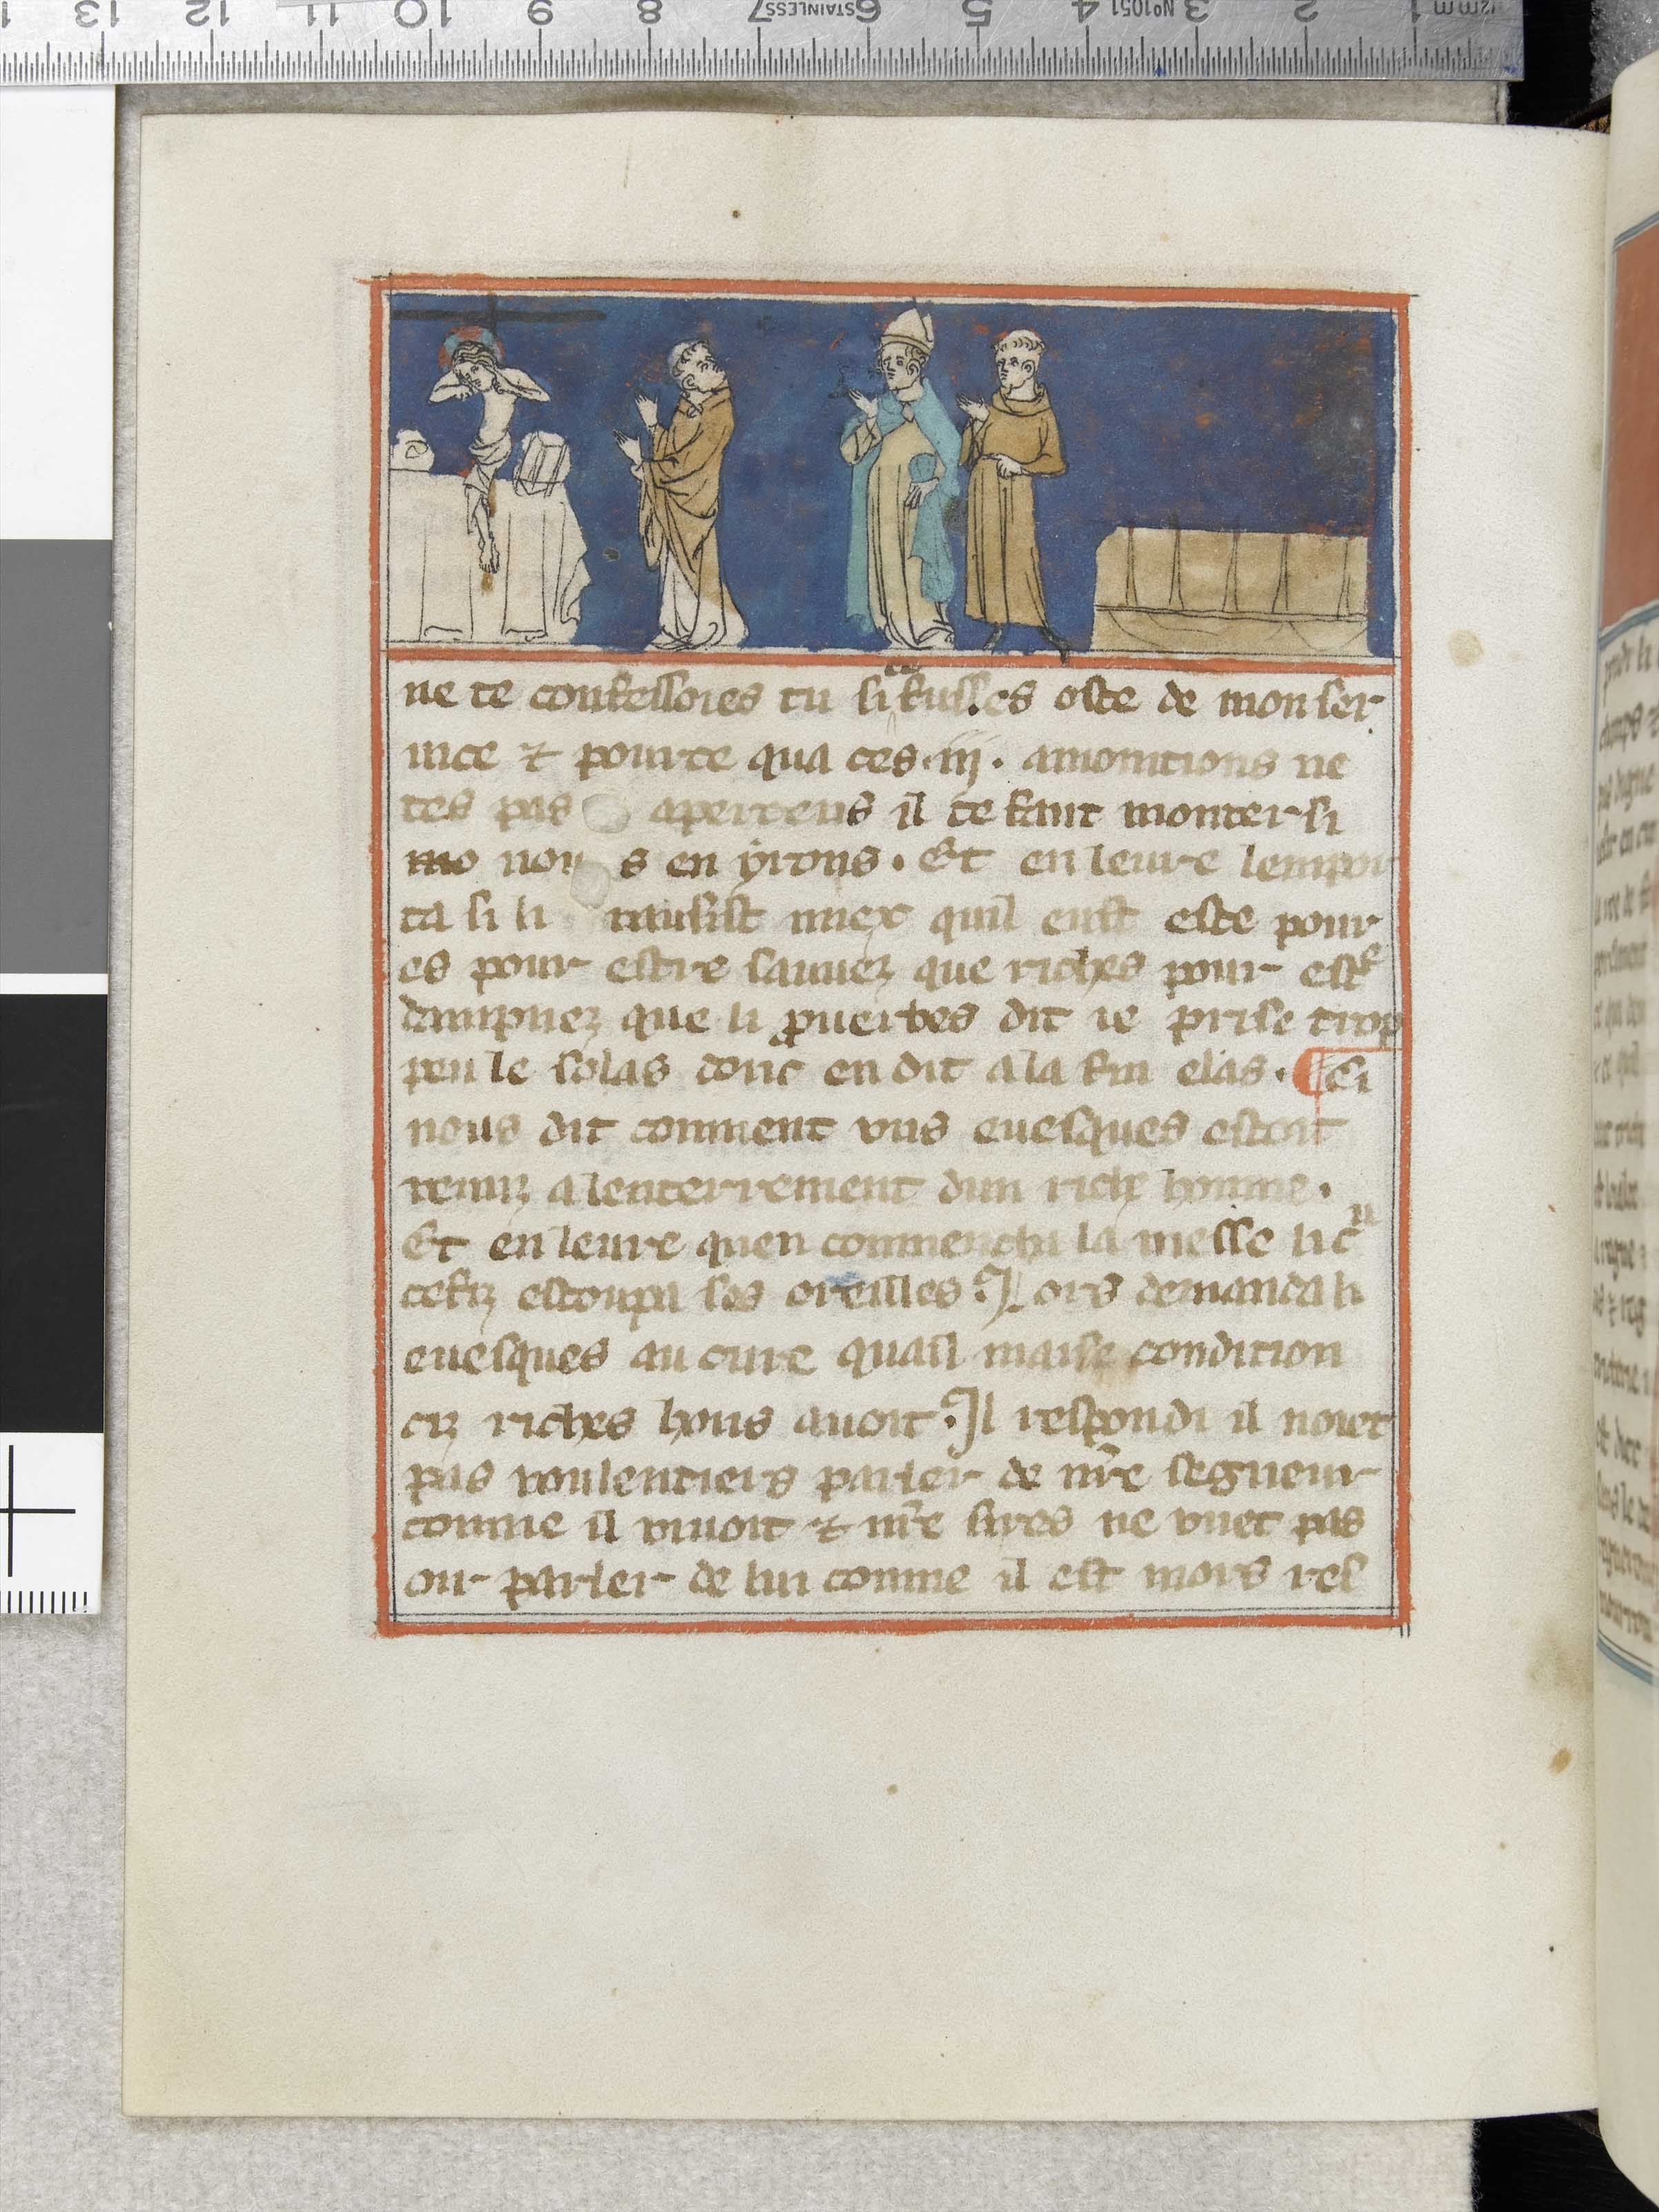 ne te confessoies tu si fusses oste de mon ser
uice ⁊ pour ce qua ces .iij. amonitions ne
tes pas aperteus il te faut monter si
mo nou s en yrons . Et en leure lempor
ta si li vausist miex quil eust este pour
es pour estre sauuez que riches pour estre
dampnez que li prouerbes dit ie prise trop
peu le solas donc en dit a la fin elas . ¶ Ci
nous dit comment vns euesques estoit
venuz a lenterrement dun riche homme .
Et en leure quen commencha la messe li cru
cefiz estoupa ses oreilles . Lors demanda li
euesques au cure quasi maise condition
ciz riches hons auoit . Il respondi il noiet
pas voulentiers parler de nre segneur
comme il viuoit ⁊ nre sires ne vuet pas
oir parler de lui comme il est mors ies
STAINLESS
Nº1051
1 2 3 4 5 6 7 8 9 10 11 12 13